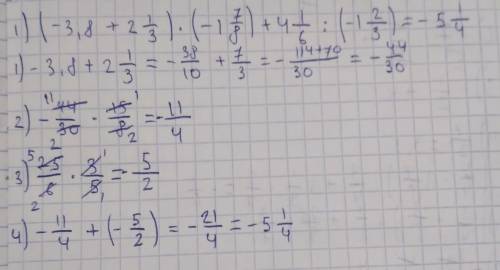 1) (-3,8 + 2 1/3) · (-1 7/8) + 4 1/6 : (-1 2/3) = -5 1/4
1) -3,8 + 2 1/3 = -38/10 + 7/3 = -114+70/30 = -44/30
2) -44/30 · 15/8 = -11/4
3) 25/6 · 3/5 = -5/2
4) -11/4 + (-5/2) = -21/4 = -5 1/4